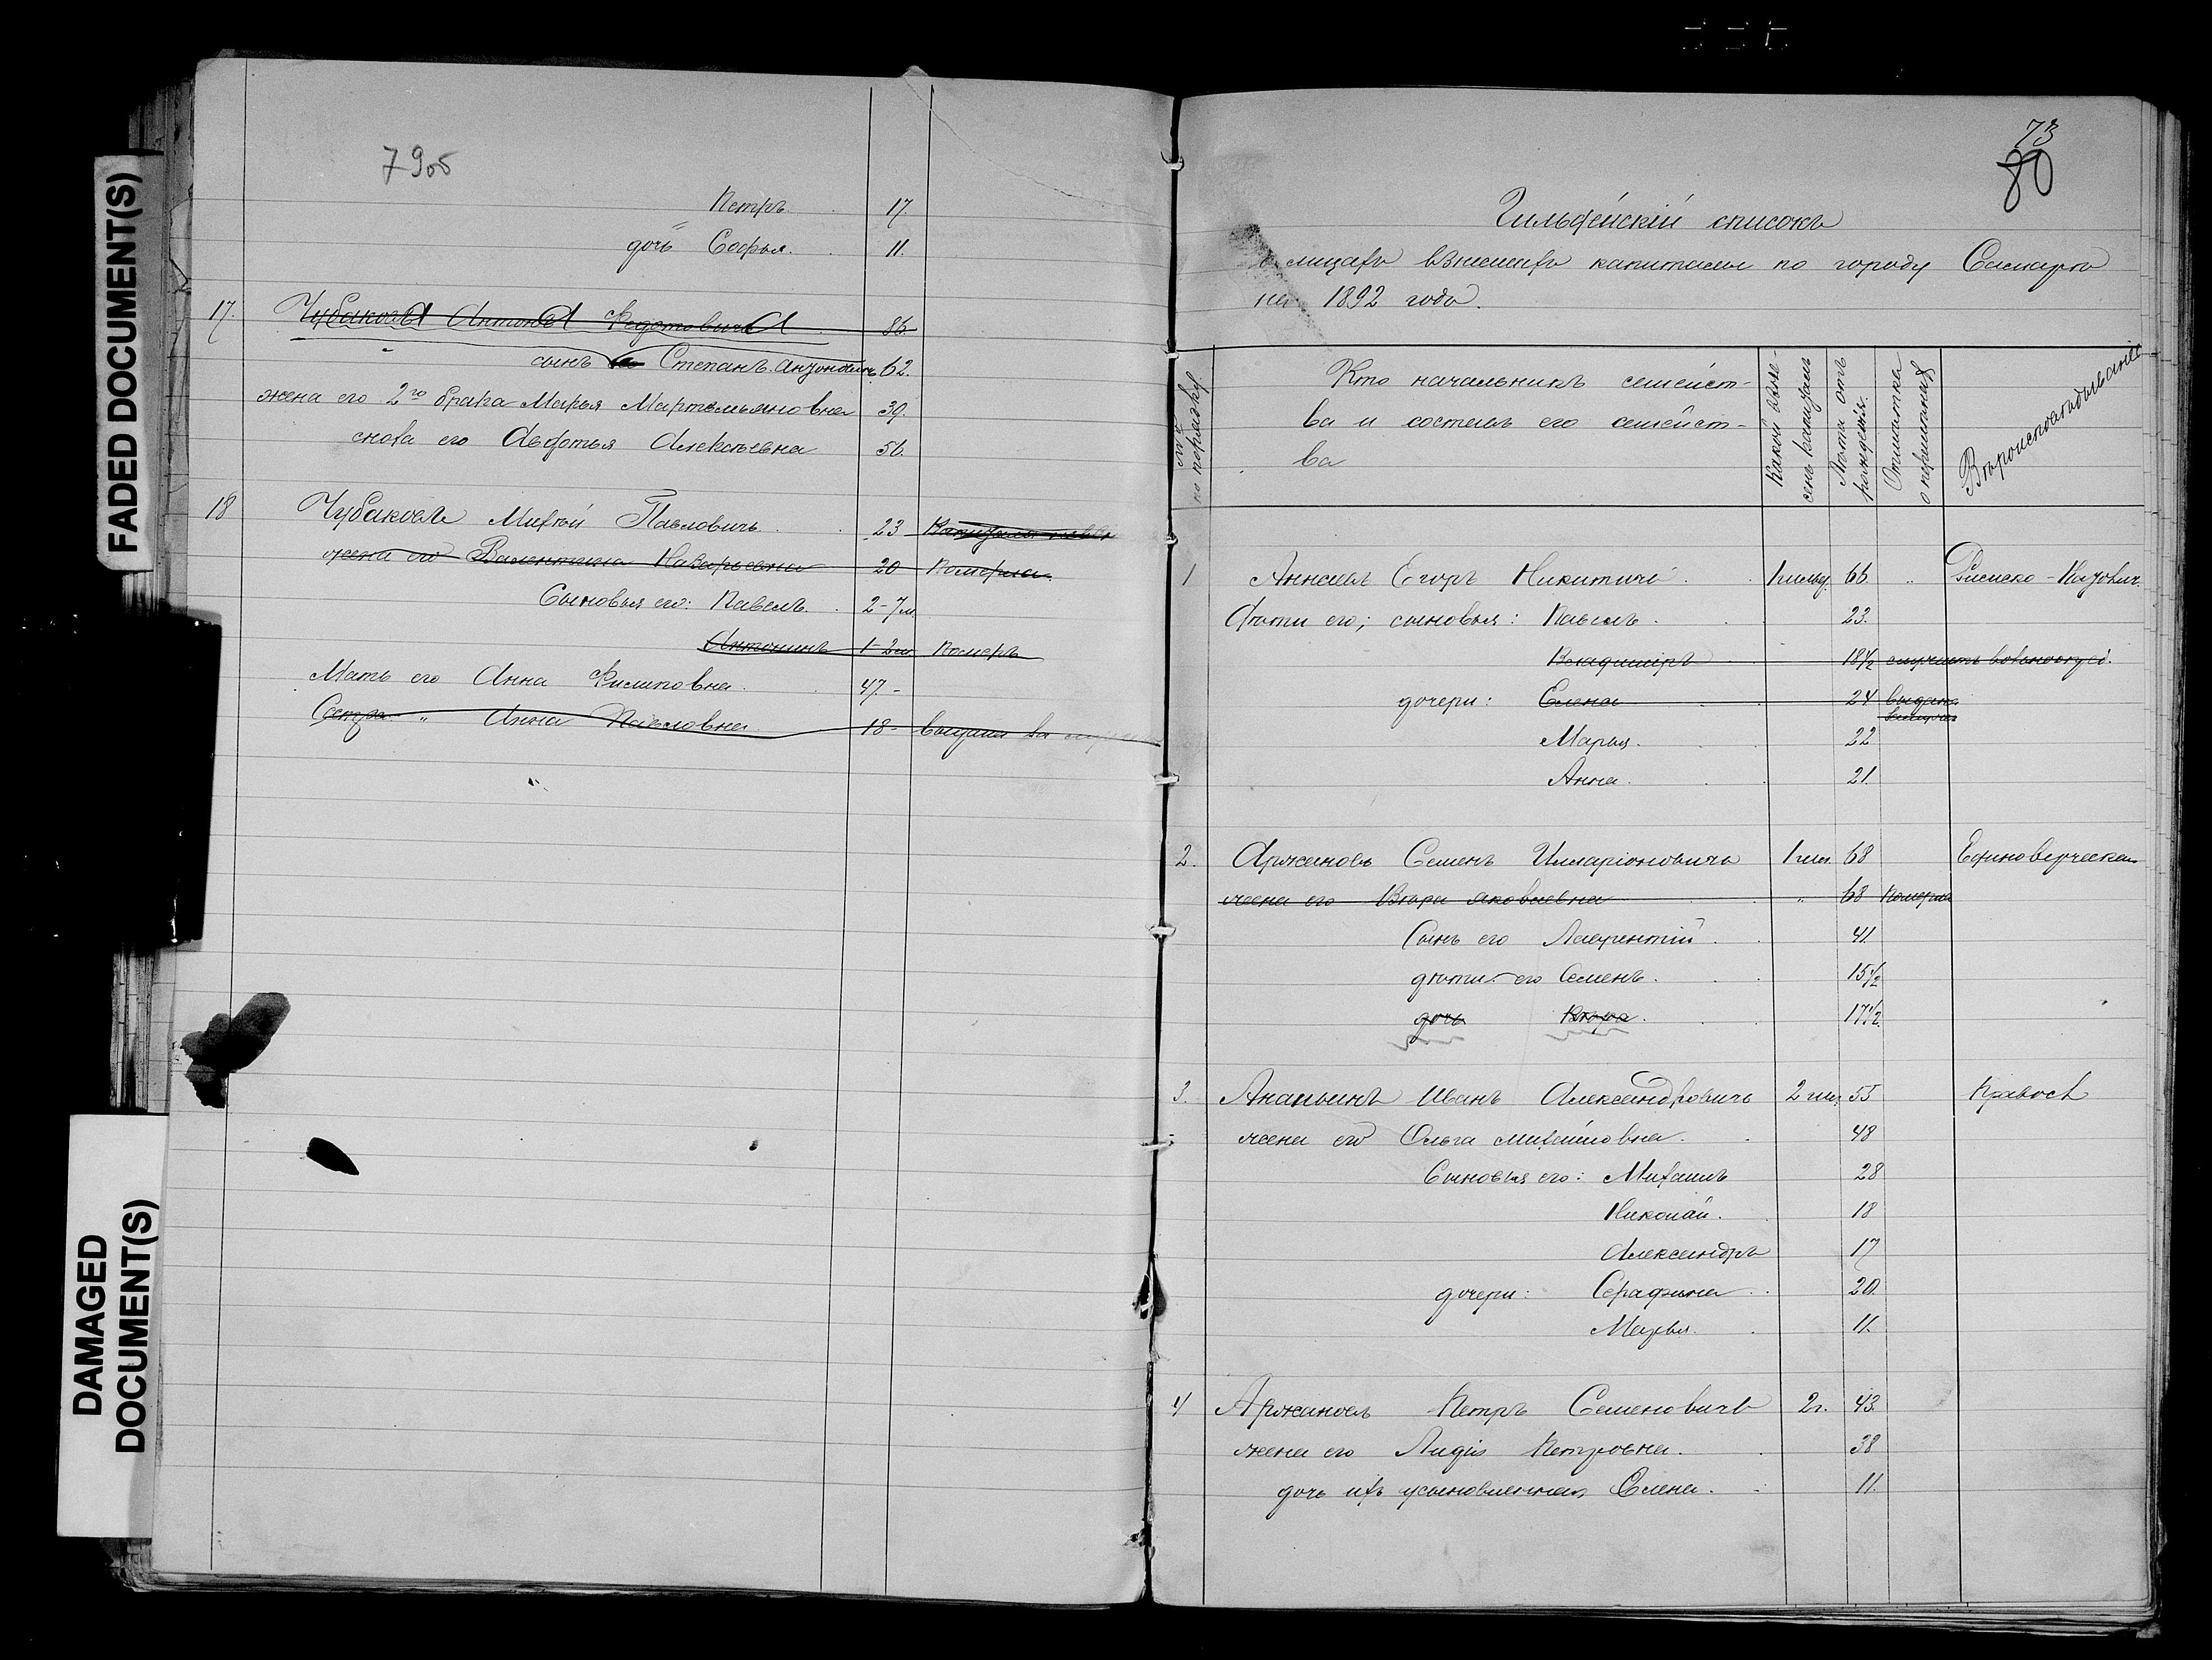 FADED DOCUMENT(S)
DAMAGED DOCUMENT(S)
79об
Петръ 17.
дочь Софья 11.
17. Чубакова Антона Федотовича 86.
сынъ Степанъ Антоновичъ 62.
жена его 2го брата Марья Мартемьяновна 39.
сноха его Авдотья Алексѣевна 56.
18 Чубаковъ Михѣй Павловичъ 23
жена его Валентина Назарьевна 20 померла
Сыновья его: Павелъ 2-7 м.
Антонинъ 1-2 м. померъ
Мать его Анна Филиповна 47.-
Сестра " Анна Павловна 18- вышла за
73
80
Гильдейскій списокъ
о лицахъ взнесшихъ капиталы по городу Самарѣ
на 1892 годъ.
№№ по порядку
Кто начальникъ семейст-
ва и составъ его семейст-
ва
Какой взне-
сенъ капиталъ
Лѣта отъ
рожденія.
Отмѣтка
о перемѣнѣ
Вѣроисповѣдываніе
1 Аннаевъ Егоръ Никитичъ 1 гильд. 66 " Римско-Католич.
Дѣти его; сыновья: Павелъ 23.
Владиміръ 18½ служитъ
дочери: Елена 24 выдана замужъ
Марья 22
Анна 21.
2. Аржановъ Семенъ Илларіоновичъ 1 гил. 68 Единоверческа
жена его Вѣра Яковлевна " 68 померла
Сынъ его Лаврентій 41
дѣти его Семенъ 15½
дочь Вѣра 17½
3. Ананьинъ Иванъ Александровичъ 2 гил. 55 Правосл
жена его Ольга Михайловна 48
Сыновья его: Михаилъ 28
Николай 18
Александръ 17
дочери: Серафима 20.
Марья 11.
4 Аржановъ Петръ Семеновичъ 2г. 43.
жена его Лидія Петровна 38
дочь ихъ усыновленная Елена 11.